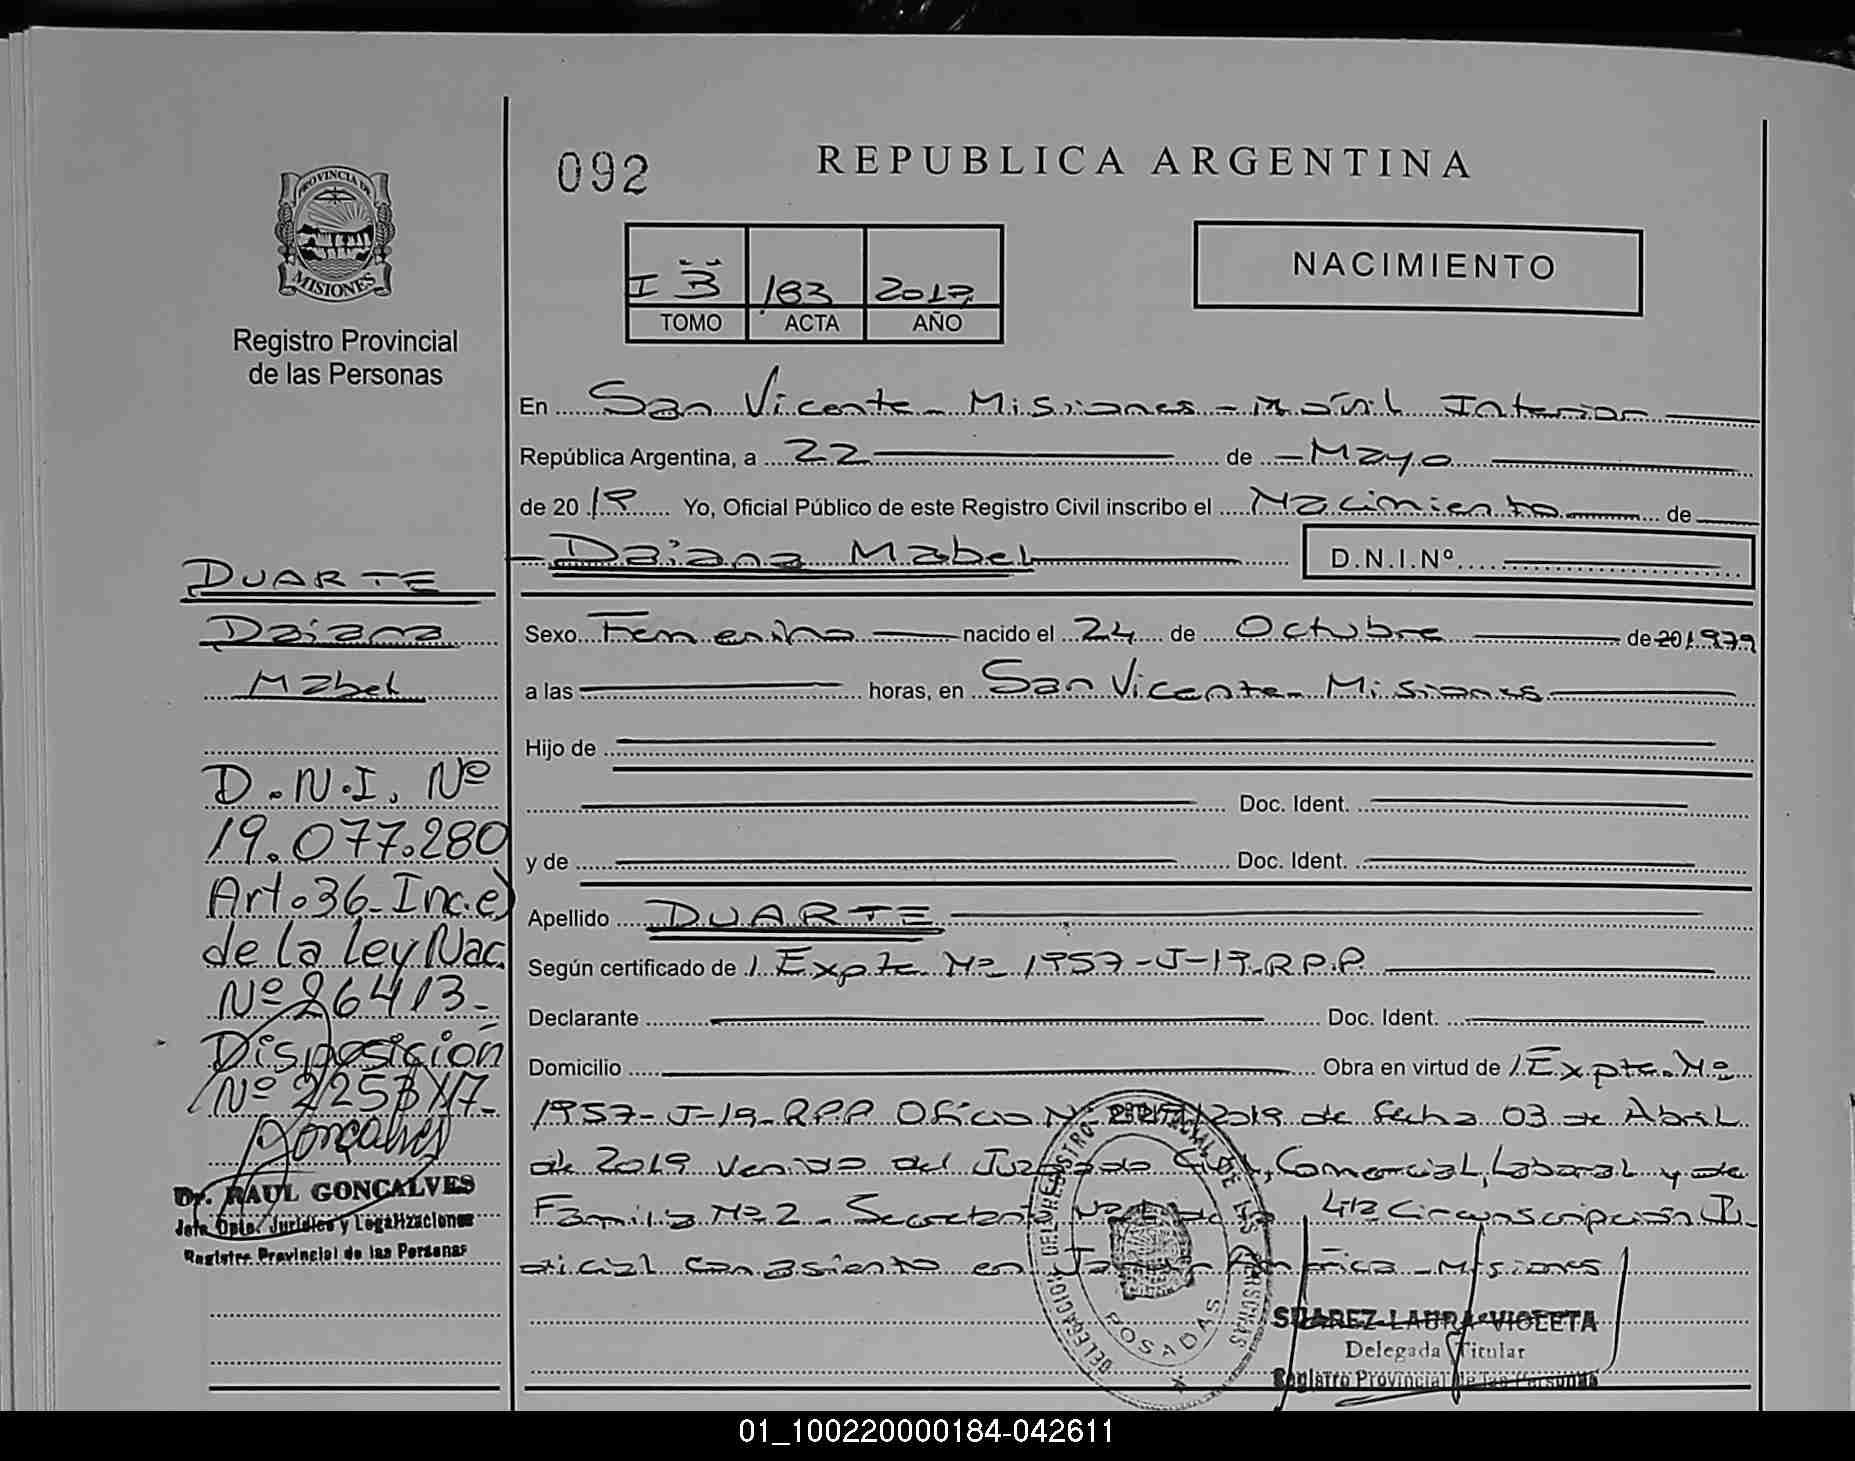 092
REPUBLICA ARGENTINA
PROVINCIA DE
MISIONES
Registro Provincial
de las Personas
I B 183
TOMO ACTA AÑO
NACIMIENTO
En San Vicente - Misiones - Móvil Interior
República Argentina, a 22 de - Mayo
de 2019 Yo, Oficial Público de este Registro Civil inscribo el Nacimiento de
Daiana Mabel D.N.I.Nº
Sexo Femenino nacido el 24 de Octubre de 201.979
a las horas, en San Vicente - Misiones
Hijo de
Doc. Ident.
y de Doc. Ident.
Apellido DUARTE
Según certificado de Expte Nº 1957-J-19-R.P.P.
Declarante Doc. Ident.
Domicilio Obra en virtud de Expte. Nº
1957-J-19-R.P.P. Oficio Nº /2019 de fecha 03 de Abril
de 2019 venido del Juzgado Civil, Comercial, Laboral y de
Familia Nº 2 - Secretaria 4ta Circunscripción Ju-
dicial con asiento en - Misiones
DUARTE
Daiana
Mabel
D.N.I. Nº
19.077.280
Art. 36 - Inc. e)
de la Ley Nac.
Nº 26413 -
Disposición
Nº 2257/17 -
Gonçalves
Dr. RAUL GONÇALVES
Jefe Dpto. Jurídico y Legalizaciones
Registro Provincial de las Personas
POSADAS
SUAREZ LAURA VIOLETA
Delegada Titular
Registro Provincial de las Personas
01_100220000184-042611